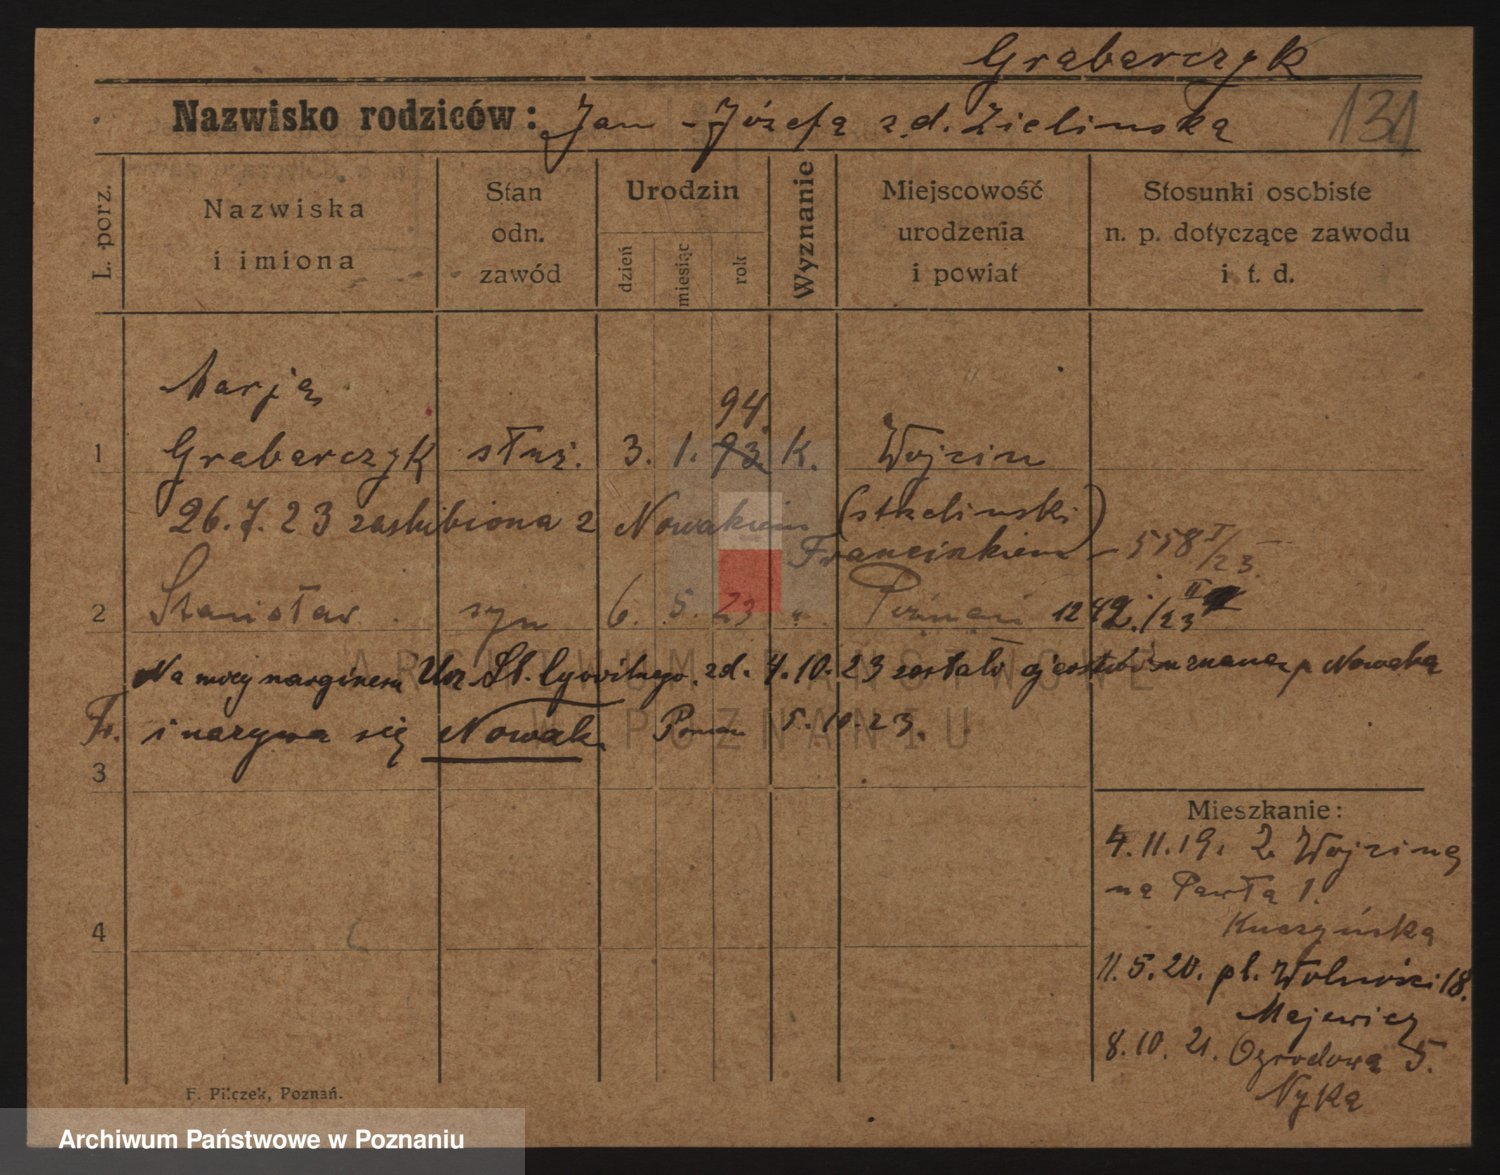 Grabarczyk
Nazwisko rodziców: Jan - Józefa z d. Zielinska
131
L. porz.
Nazwiska i imiona
Stan odn. zawód
Urodzin
dzień
miesiąc
rok
Wyznanie
Miejscowość urodzenia i powiat
Stosunki osobiste n. p. dotyczące zawodu i t. d.
Marja
94
1 Grabarczyk służ. 3. 1. 93 K. Wojcin
26.7.23 zaślubiona z Nowakiem (strzelinski)
Franciszkiem - 558 I/23.
2 Stanisław syn 6. 5. 23 " Poznań 1242 II/23
Na mocy marginesu Urz. St. Cywilnego. zd. 4.10.23 zostało uznane p Nowaka
Fr. i nazywa się Nowak Poznań 5.10.23.
3
Mieszkanie:
4.11.19. z Wojcina
na Pawła 1.
Kuczyńska
4
11.5.20. pl. Wolności 18.
Majewicz
8.10.21. Ogrodowa 5.
Nyka
F. Pilczek, Poznań.
ARCHIWUM PAŃSTWOWE
W POZNANIU
Archiwum Państwowe w Poznaniu